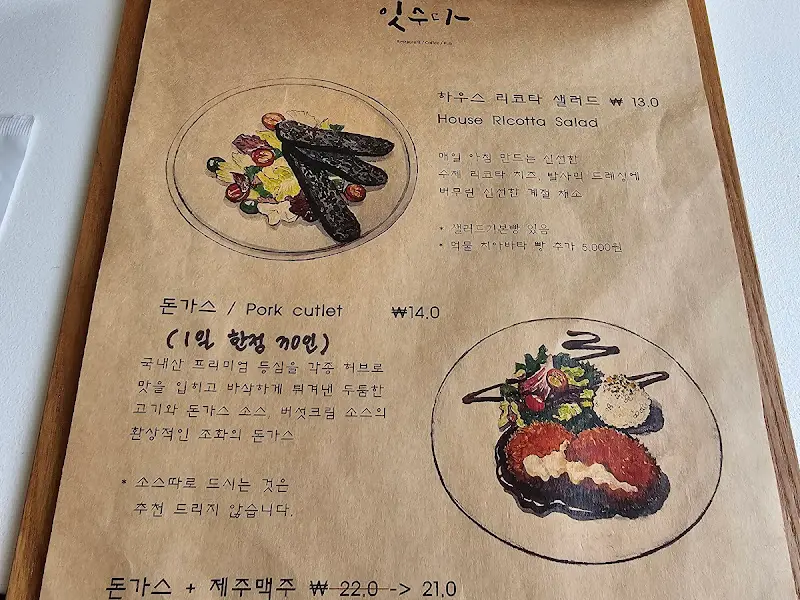 잇수다
하우스 리코타 샐러드 ₩ 13.0
House RIcotta Salad
매일 아침 만드는 신선한
수제 리코타 치즈, 발사믹 드레싱에
버무린 신선한 계절 채소
* 샐러드기본빵 있음
* 먹물 치아바타 빵 추가 5.000원
돈가스 / Pork cutlet ₩14.0
(1일 한정 30인)
국내산 프리미엄 등심을 각종 허브로
맛을 입히고 바삭하게 튀겨낸 두툼한
고기와 돈가스 소스, 버섯크림 소스의
환상적인 조화의 돈가스
* 소스따로 드시는 것은
추천 드리지 않습니다.
돈가스 + 제주맥주 ₩ 22.0 -> 21.0